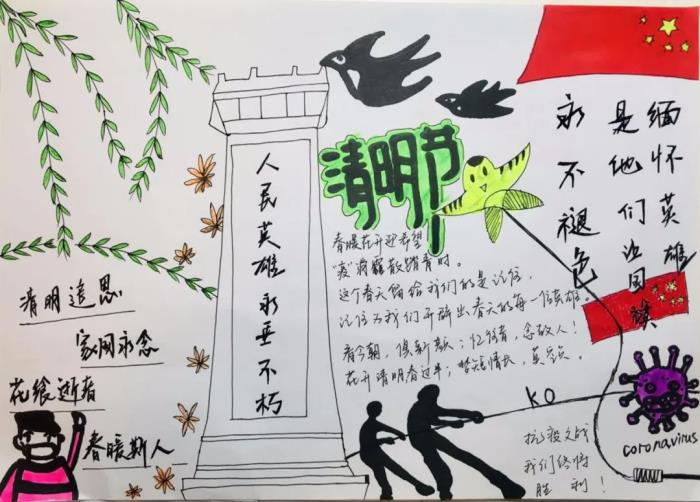 清明节
缅怀英雄
是他们让国旗
永不褪色
人民英雄永垂不朽
清明追思
家国永念
花飨逝者
春暖斯人
春暖花开迎希望
"疫"消霾散踏青时。
这个春天留给我们的是记住,
记住为我们开辟出春天的每一位英雄。
看今朝,俱新颜;忆往昔,念故人!
花开清明春过半;梦短情长,
KO
coronavirus
抗疫之战
我们终将
胜利!